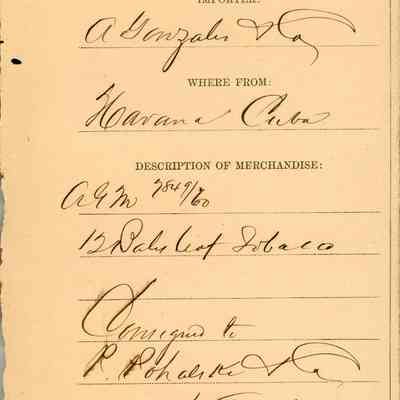 IMPORTER:
A Gonzales & Co
WHERE FROM:
Havana Cuba
DESCRIPTION OF MERCHANDISE:
AGM 2849/60
12 Bales leaf Tobacco
Consigned to
P. Pohalski & Co